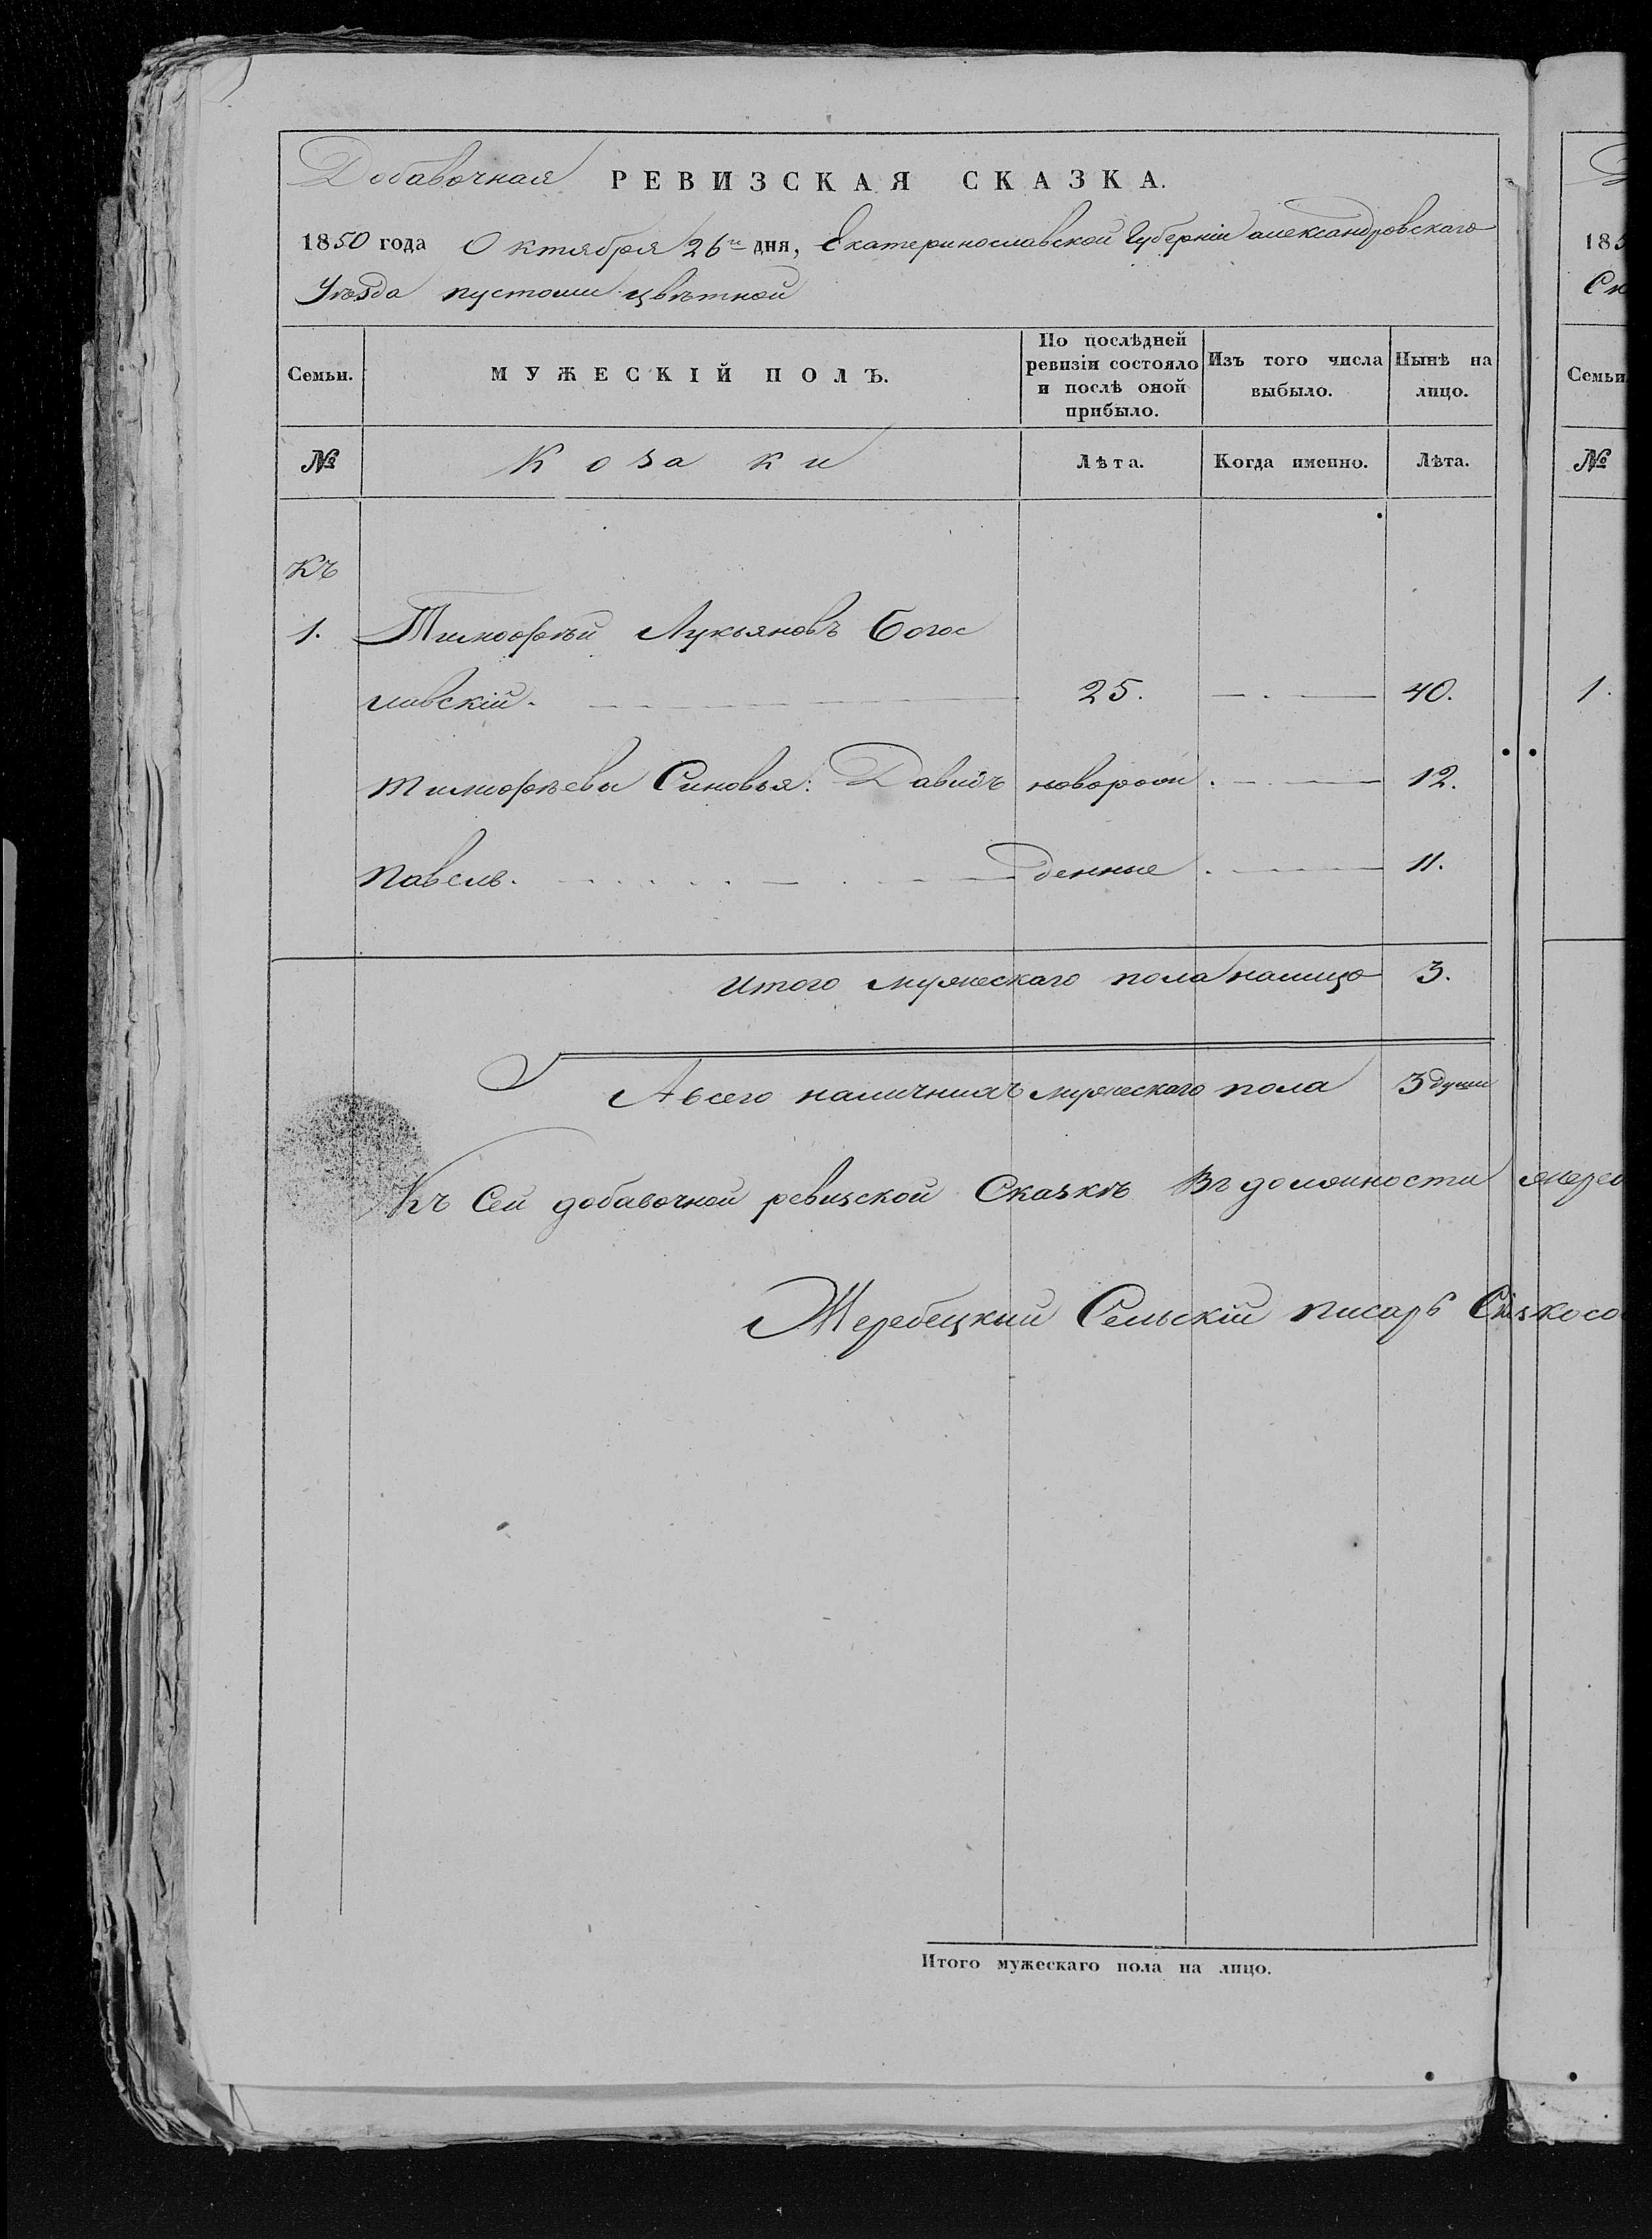 Добавочная РЕВИЗСКАЯ СКАЗКА.
1850 года Октября 26го дня, Екатеринославской Губерніи александровскаго
Уѣзда пустоши цвѣтной
Семьи. МУЖЕСКІЙ ПОЛЪ. По послѣдней ревизіи состояло и послѣ оной прибыло. Изъ того числа выбыло. Нынѣ на лицо.
№ Козаки Лѣта. Когда именно. Лѣта.
Къ
1. Тимофѣй Лукьяновъ Богос
лавскій. 25. 40.
тимофѣевы Синовья: Давидъ новорож 12.
Павелъ. денные 11.
Итого мужескаго пола налицо 3.
А всего наличнихъ мужескаго пола 3 души
Къ Сей добавочной ревизской Сказкѣ Въ должности
Жеребецкий Сельскій писарь
Итого мужескаго пола на лицо.
185
Семьи
№
1.